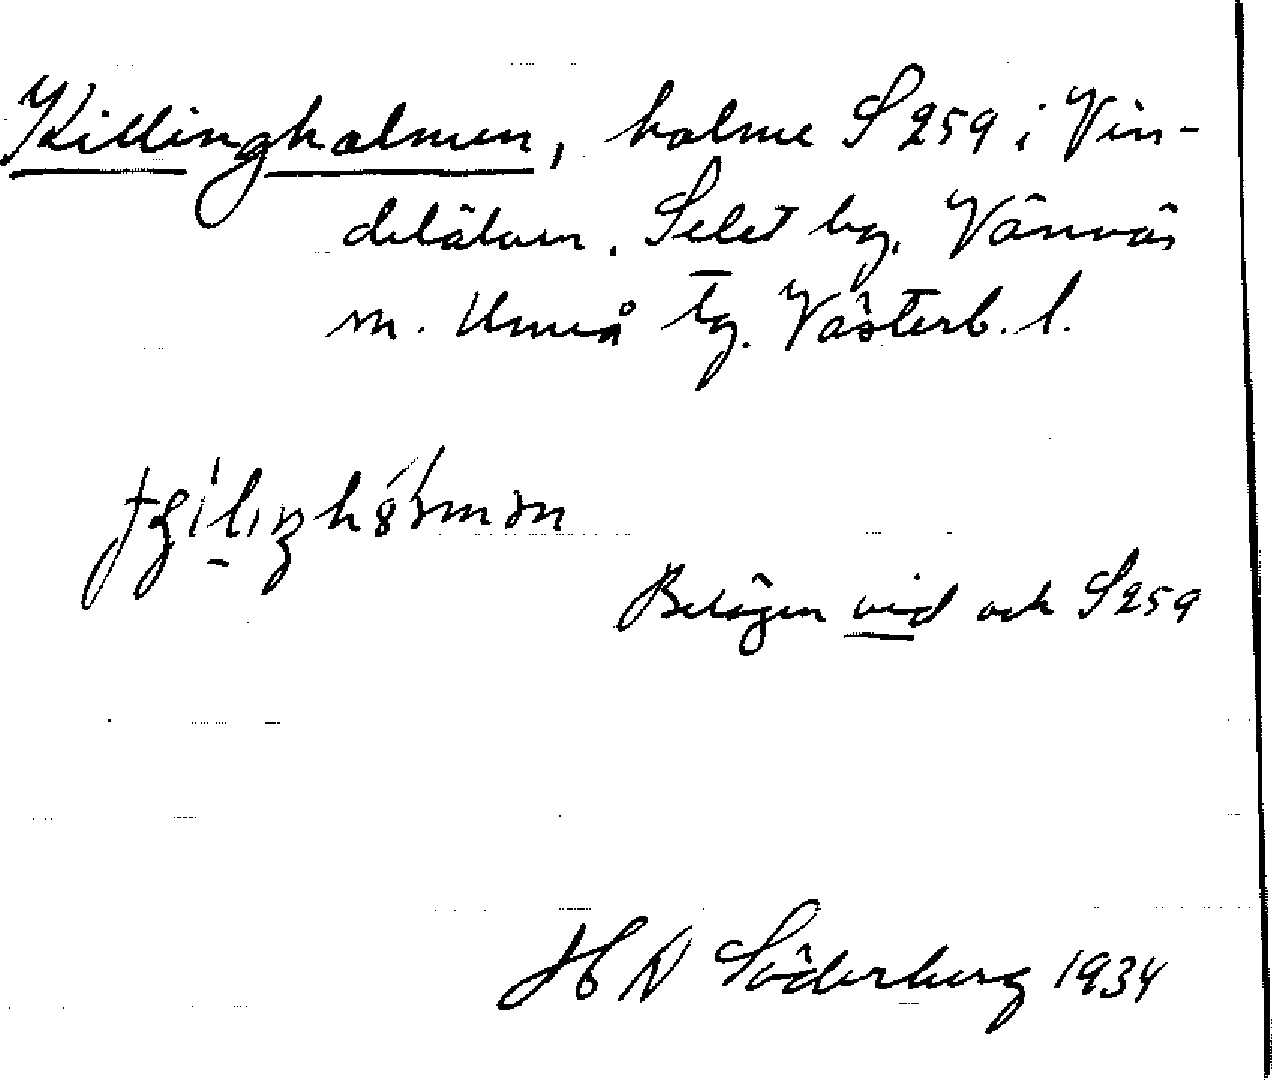 Killingholmen, holme S 259 i Vin-
delälven. Selet by, Vännäs
m. Umeå tg. Västerb. l.
Belägen vid och S 259
H N Söderberg 1934